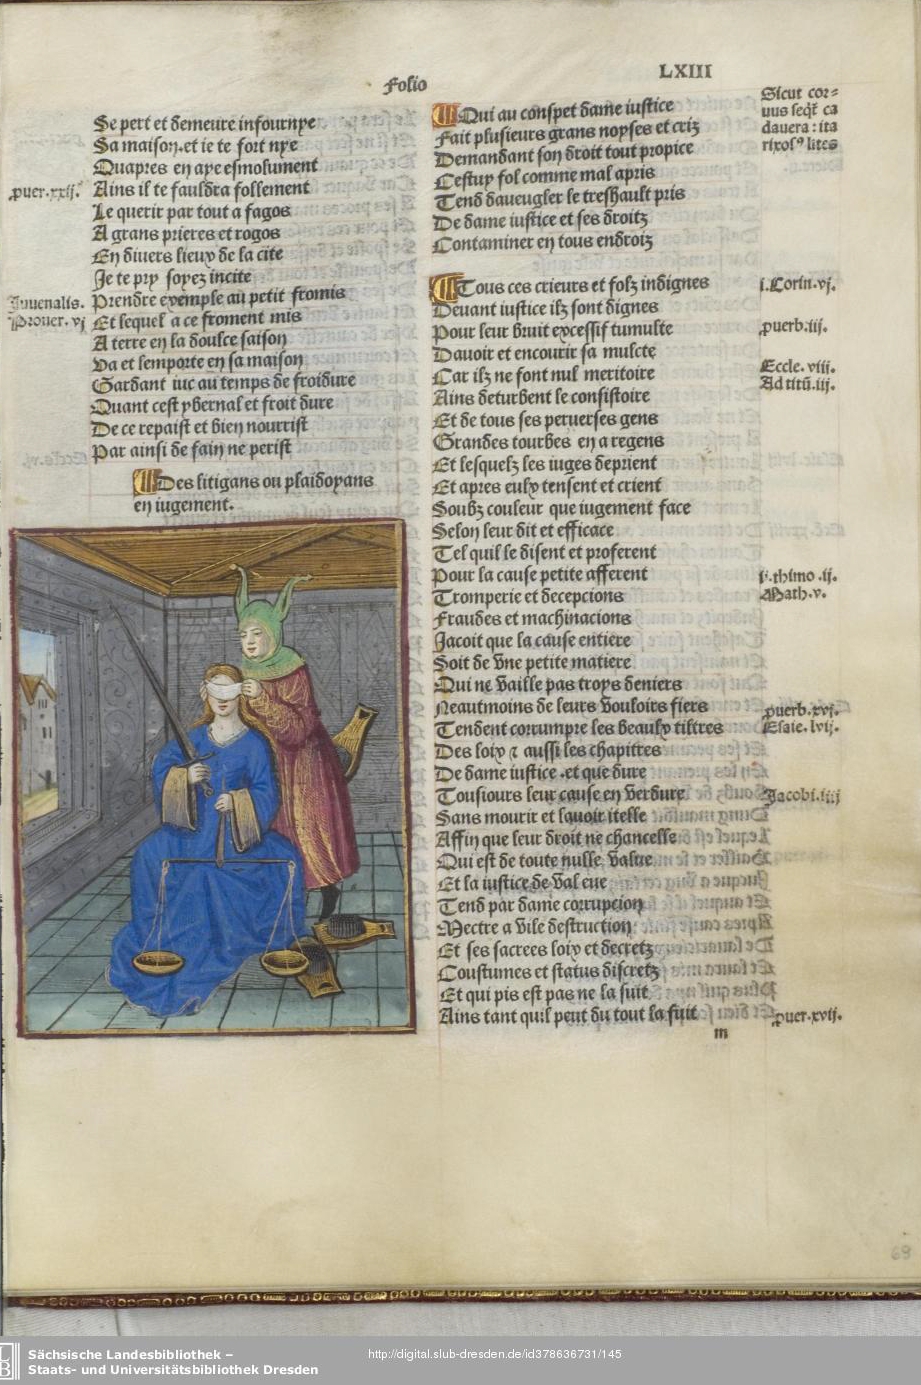 Folio
LXIII
Se pert et demeure infournye
Sa maison. et ie te fort nye
Quapres en aye esmolument
Ains il te fauldra follement
Le querir par tout a fagos
A grans prieres et rogos
En diuers lieux de la cite
Je te pry soyez incite
Prendre exemple au petit fromis
Et lequel a ce froment mis
A terre en la doulce saison
Va et lemporte en sa maison
Gardant iuc au temps de froidure
Quant cest ybernal et froit dure
De ce repaist et bien nourrist
Par ainsi de fain ne perist
puer.xxij.
Juuenalis.
Prouer.vj
Des litigans ou plaidoyans
en iugement.
Qui au conspet dame iustice
Fait plusieurs grans noyses et criz
Demandant son droit tout propice
Cestuy fol comme mal apris
Tend daueugler le treshault pris
De dame iustice et ses droitz
Contaminer en tous endroiz
Tous ces crieurs et folz indignes
Deuant iustice ilz sont dignes
Pour leur bruit excessif tumulte
Dauoir et encourir sa mulcte
Car ilz ne font nul meritoire
Ains deturbent le consistoire
Et de tous ses peruerses gens
Grandes tourbes en a regens
Et lesquelz les iuges deprient
Et apres eulx tensent et crient
Soubz couleur que iugement face
Selon leur dit et efficace
Tel quil le disent et proferent
Pour la cause petite afferent
Tromperie et decepcions
Fraudes et machinacions
Jacoit que la cause entiere
Soit de vne petite matiere
Qui ne vaille pas troys deniers
Neautmoins de leurs vouloirs fiers
Tendent corrumpre les beaulx tiltres
Des loix ⁊ aussi les chapitres
De dame iustice .et que dure
Tousiours leur cause en verdure
Sans mourir et sauoir itelle
Affin que leur droit ne chancelle
Qui est de toute nulle value
Et la iustice de val cue
Tend par dame corrupcion
Mectre a vile destruction
Et ses sacrees loix et decretz
Coustumes et status discretz
Et qui pis est pas ne la suit
Ains tant quil peut du tout la fuit
m
Sicut cor=
uus seqt̃ ca
dauera: ita
rixosꝰ lites
i.Corin.vj.
puerb.iij.
Eccle.viii.
Ad titũ.iij.
i.thimo.ij.
Math.v.
puerb.xvj.
Esaie.lvij.
Jacobi.iiij
puer.xvij.
69
Sächsische Landesbibliothek –
Staats- und Universitätsbibliothek Dresden
http://digital.slub-dresden.de/id378636731/145